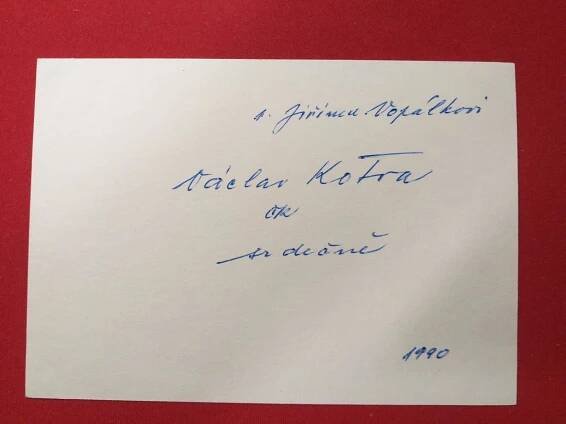 p. Jiřímu Vopálkovi
Václav Kotva
srdečně
1990